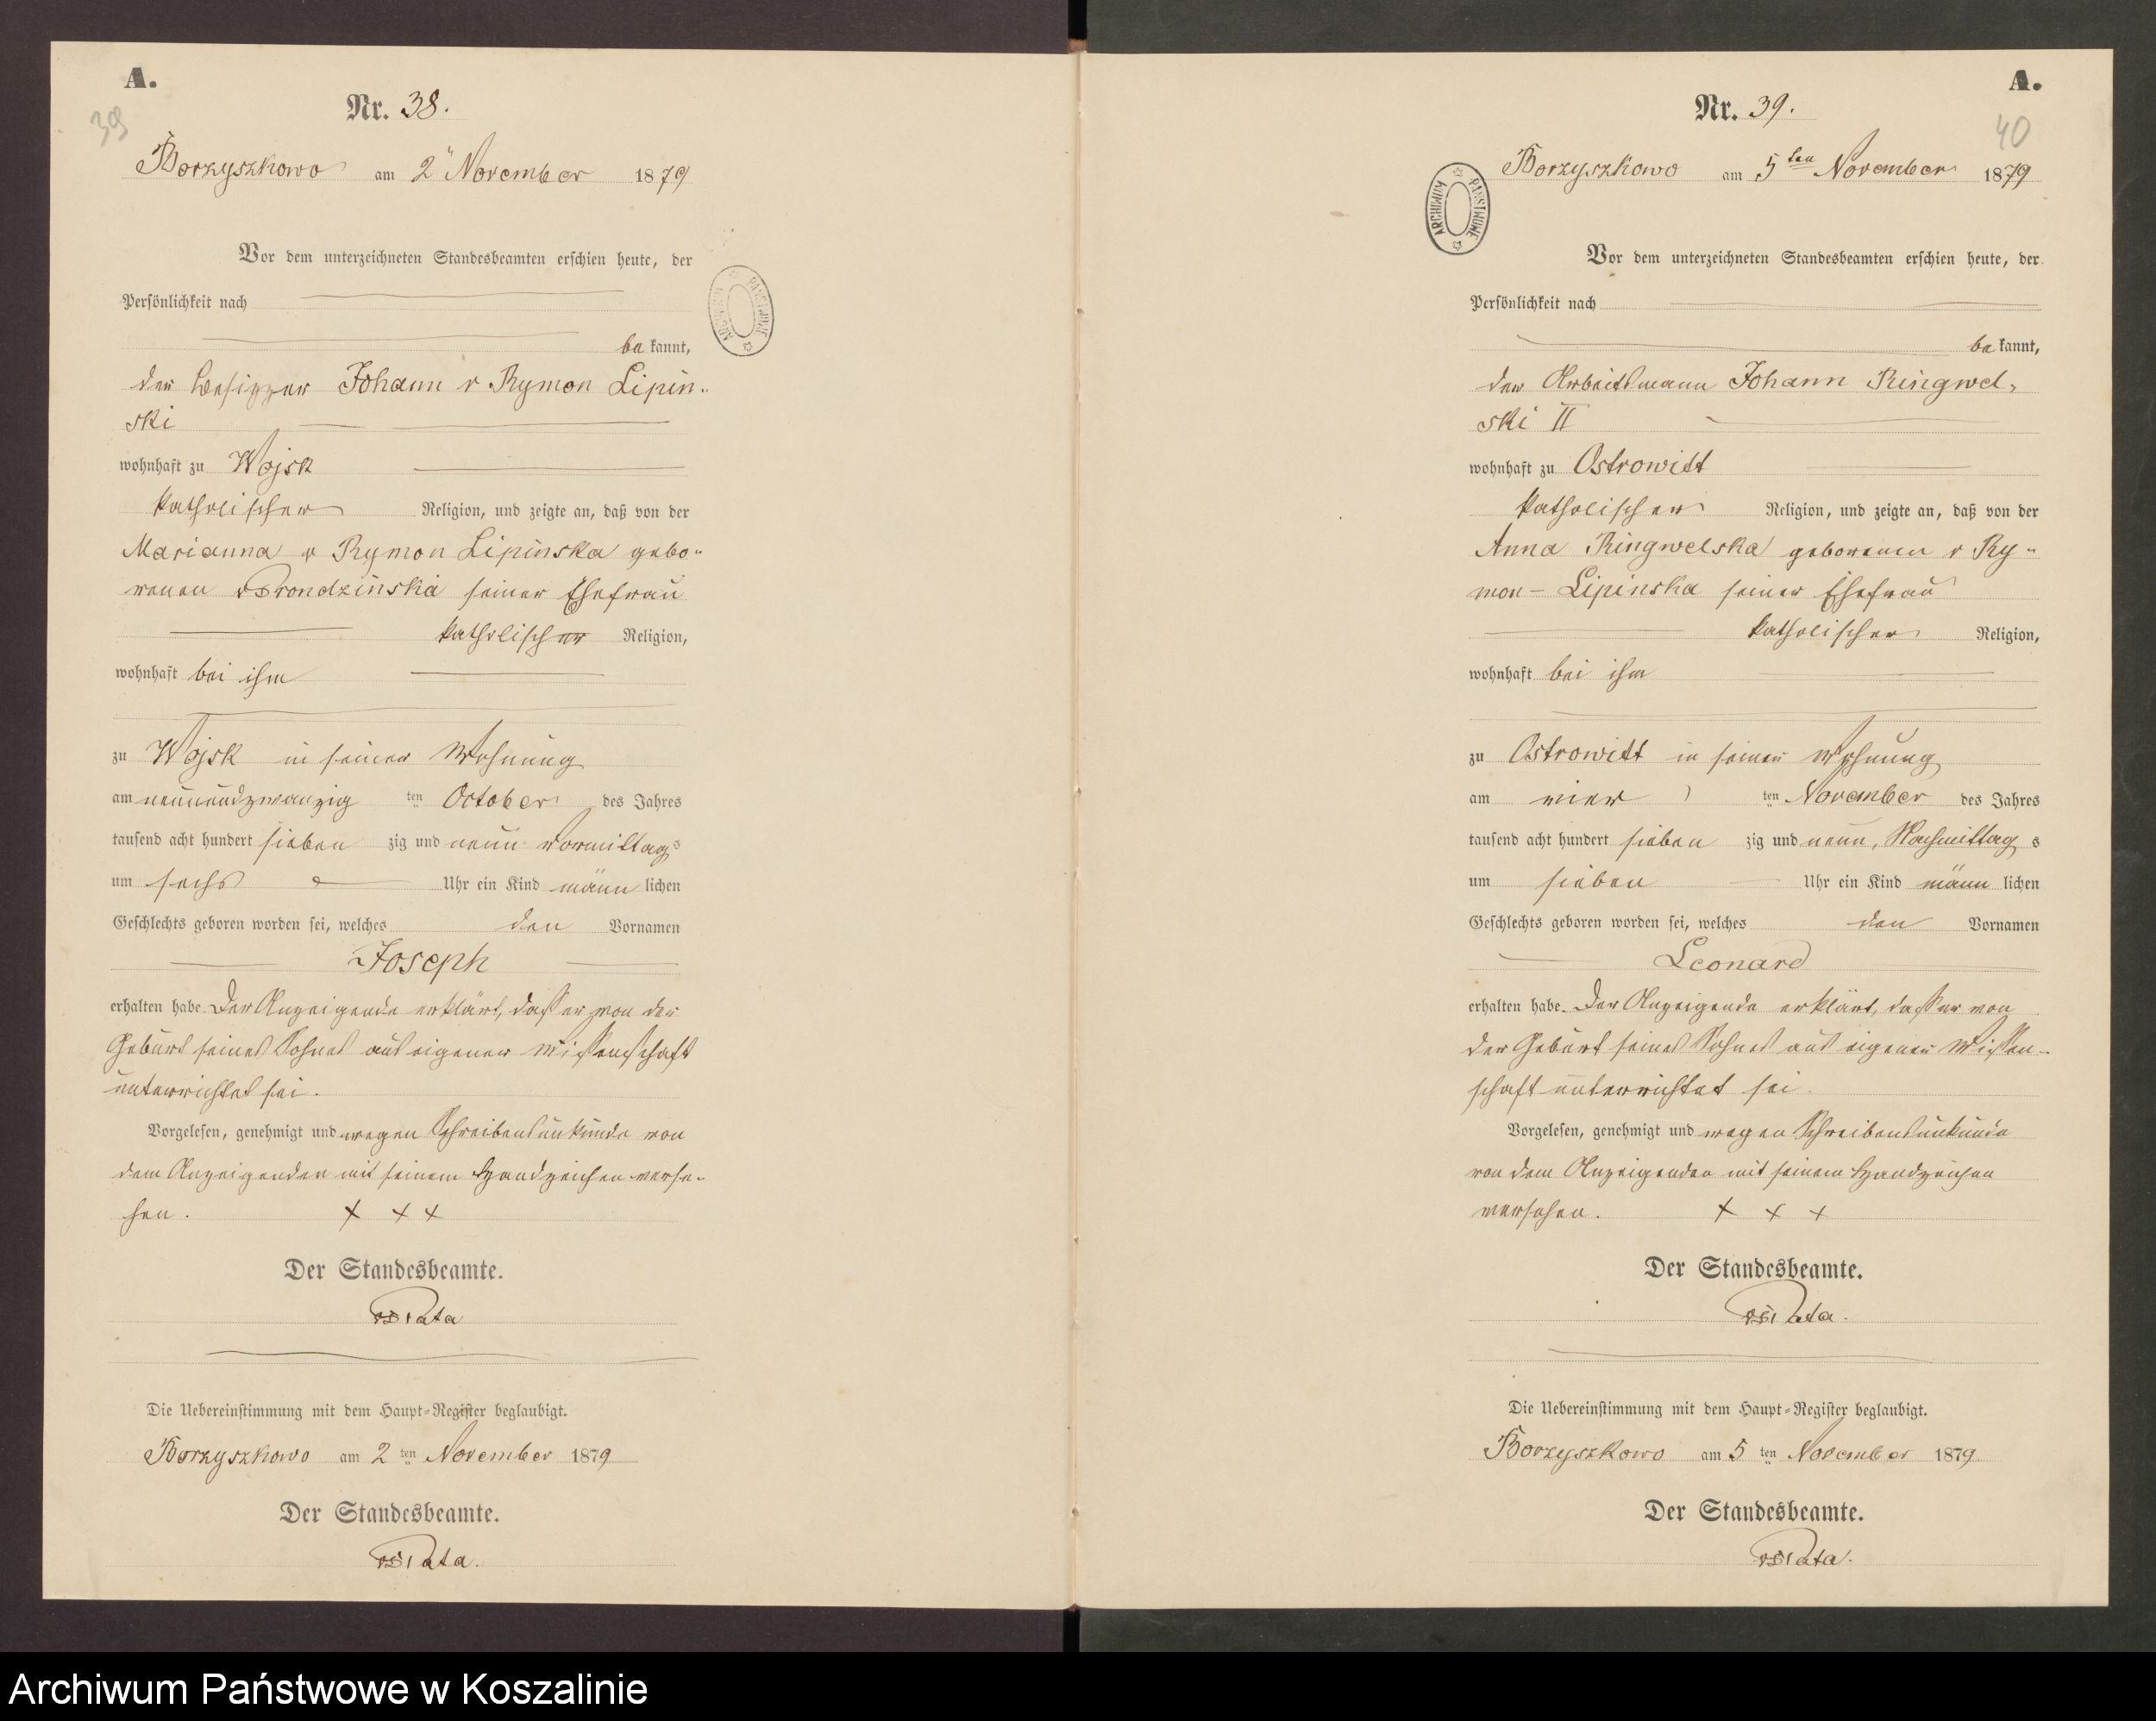 A.
39
Nr. 38.
Borzyszkowo am 2" November 1879
Vor dem unterzeichneten Standesbeamten erschien heute, der
Persönlichkeit nach
be kannt,
der Besitzer Johann v Rymon Lipin-
ski
wohnhaft zu Wojsk
katholischer Religion, und zeigte an, daß von der
Marianna v Rymon Lipinska gebo-
renen v Prondzinska seiner Ehefrau
katholischer Religion,
wohnhaft bei ihm
zu Wojsk in seiner Wohnung
am neunundzwanzig ten October des Jahres
tausend acht hundert sieben zig und neun Vormittags
um sechs Uhr ein Kind männ lichen
Geschlechts geboren worden sei, welches den Vornamen
Joseph
erhalten habe. Der Anzeigende erklärt, daß er von der
Geburt seines Sohnes aus eigener Wissenschaft
unterrichtet sei.
Vorgelesen, genehmigt und wegen Schreibensunkunde von
dem Anzeigenden mit seinem Handzeichen verse-
hen. + + +
Der Standesbeamte.
Die Uebereinstimmung mit dem Haupt-Register beglaubigt.
Borzyszkowo am 2 ten November 1879
Der Standesbeamte.
ARCHIWUM PAŃSTWOWE
A.
40
Nr. 39.
Borzyszkowo am 5ten November 1879
Vor dem unterzeichneten Standesbeamten erschien heute, der
Persönlichkeit nach
be kannt,
der Arbeitsmann Johann Ringwel-
ski II
wohnhaft zu Ostrowitt
katholischer Religion, und zeigte an, daß von der
Anna Ringwelska geborenen v Ry-
mon - Lipinska seiner Ehefrau
katholischer Religion,
wohnhaft bei ihm
zu Ostrowitt in seiner Wohnung
am vier ten November des Jahres
tausend acht hundert sieben zig und neun, Nachmittag s
um sieben Uhr ein Kind männ lichen
Geschlechts geboren worden sei, welches den Vornamen
Leonard
erhalten habe. Der Anzeigende erklärt, daß er von
der Geburt seines Sohnes aus eigener Wissen-
schaft unterrichtet sei.
Vorgelesen, genehmigt und wegen Schreibensunkunde
von dem Anzeigenden mit seinem Handzeichen
versehen. + + +
Der Standesbeamte.
Die Uebereinstimmung mit dem Haupt-Register beglaubigt.
Borzyszkowo am 5 ten November 1879
Der Standesbeamte.
ARCHIWUM PAŃSTWOWE
Archiwum Państwowe w Koszalinie